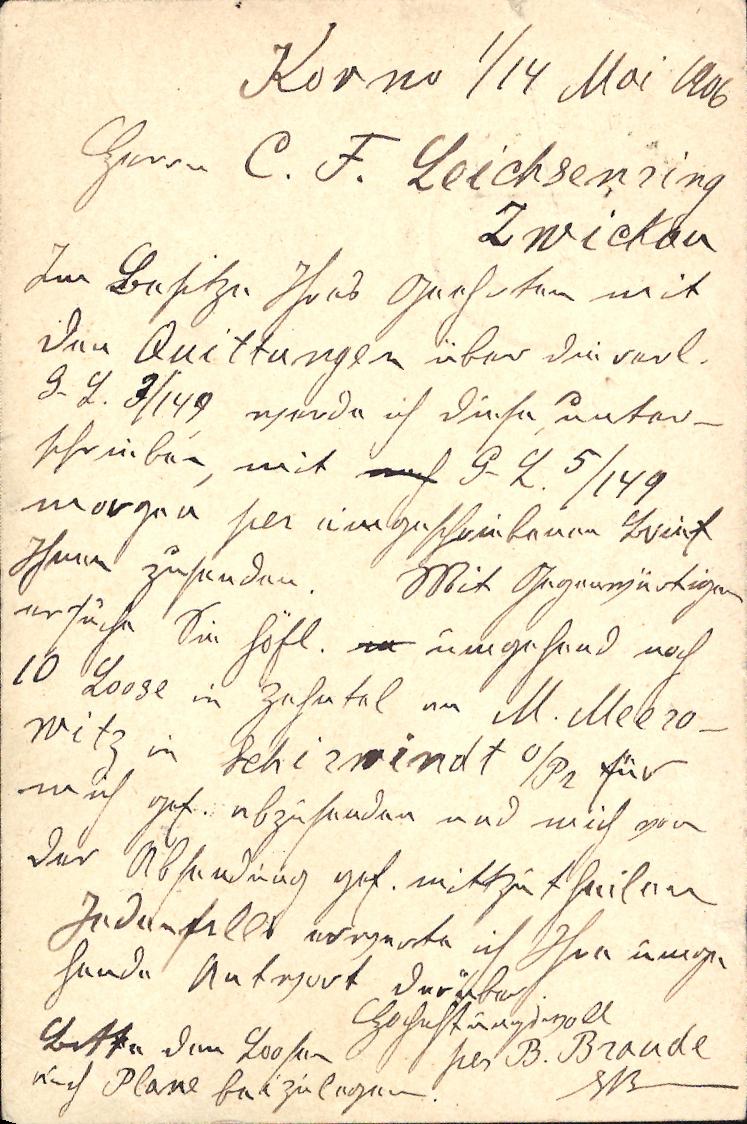 Kovno 1/14 Mai 1906
Herrn C. F. Leichsenring
Zwickau
Im Besitze Ihres Geehrten mit
den Quittungen über die verl.
G. L. 3/149 werde ich diese, unter-
schrieben, mit G. L. 5/149
morgen per eingeschriebenen Brief
Ihnen zusenden. Mit Gegenwärtigen
ersuche Sie höfl. umgehend noch
10 Loose in Zehntel an M. Meero-
witz in Schirwindt O/Pr für
mich gef. abzusenden und mich von
der Absendung gef. mittzutheilen
Jedenfalls erwarte ich Ihre umge
hende Antwort darüber
Hochachtungsvoll
Bitte den Loosen per B. Braude
auch Plane beizulegen.